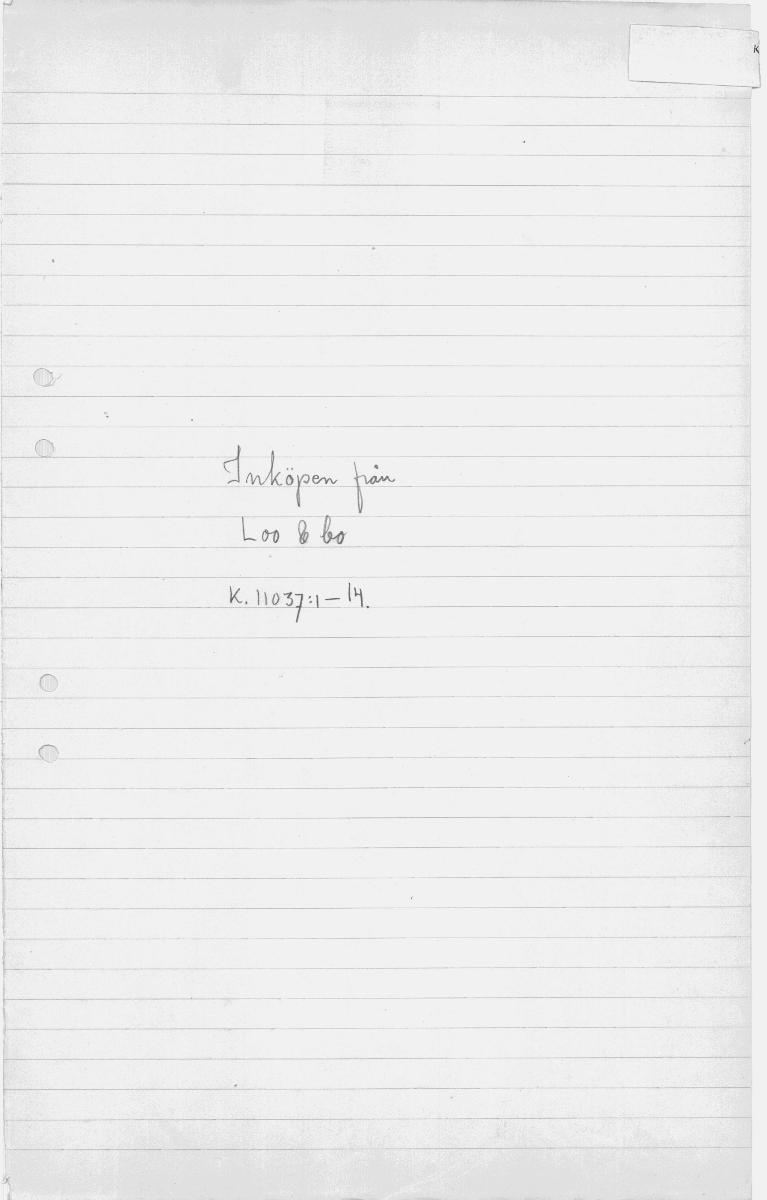 K
Inköpen från
Loo & Co
K. 11037:1–14.